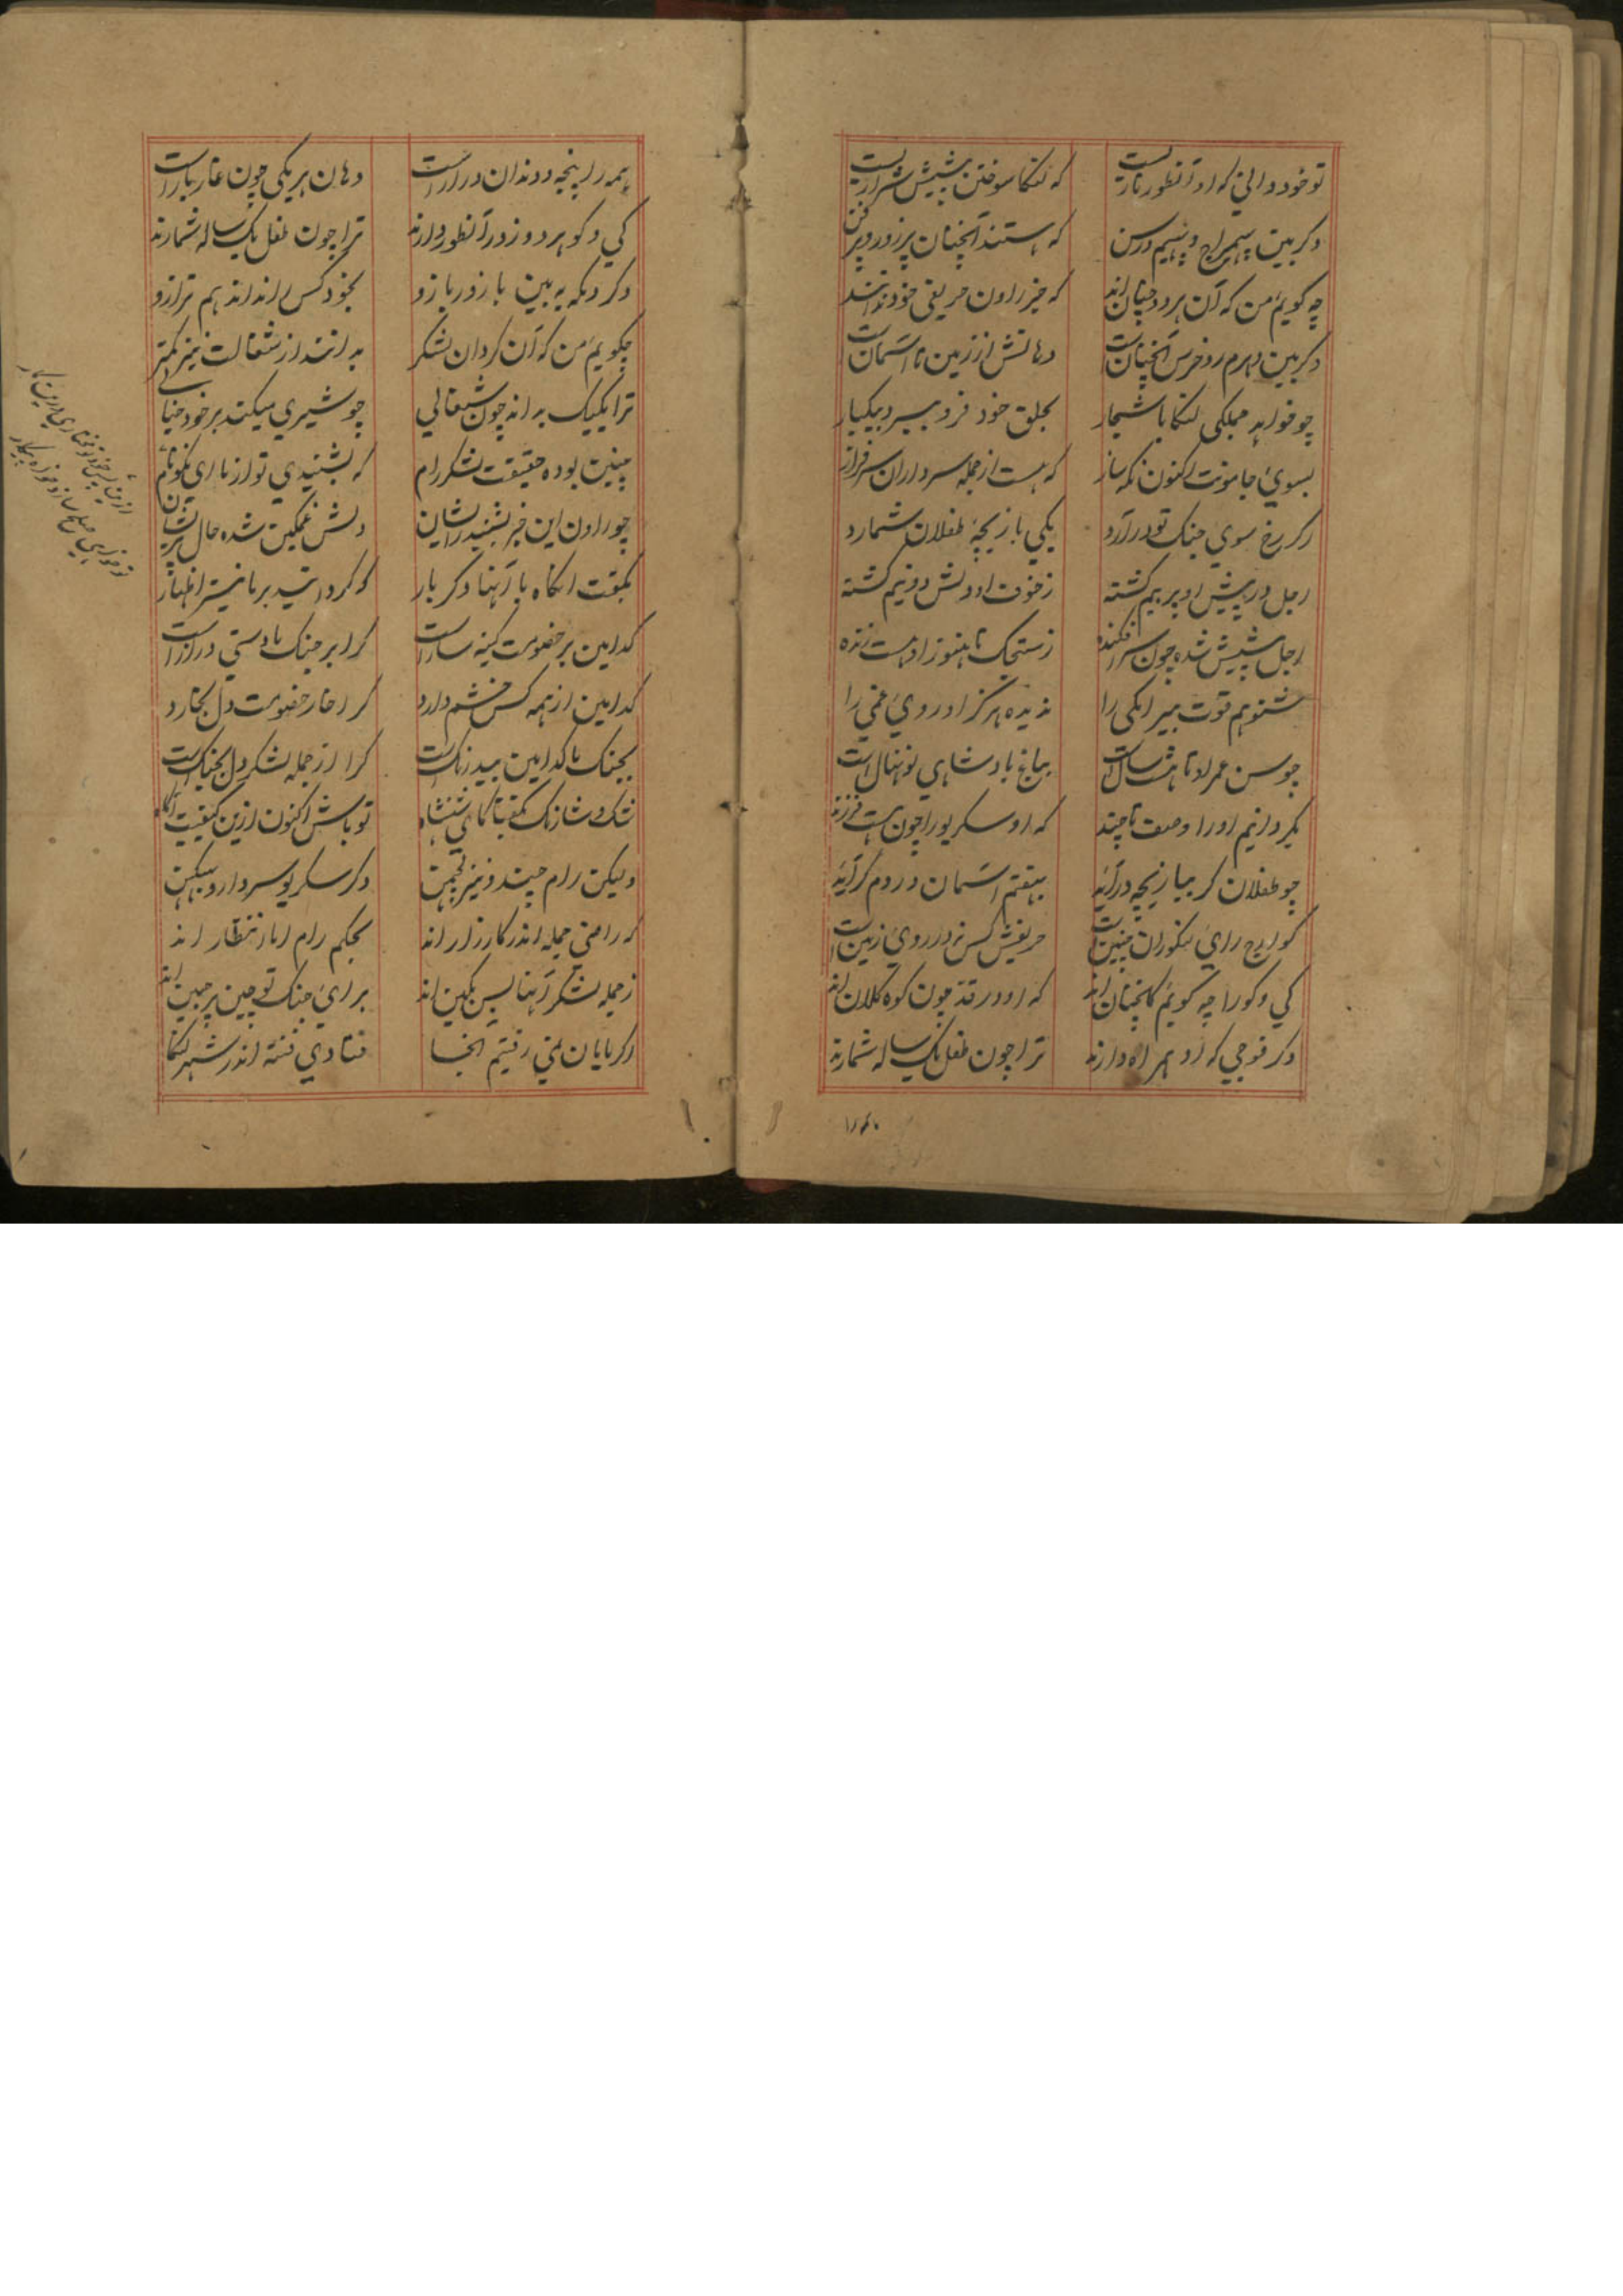 تو خود دانی که او آنطور نازیست که لنکا سوختن پیشش
دگر بین بهیمراج و بهیم درسن که هستند آنچنان پرزور و پرفن
چه گویم من که آن هر دو چنان اند که خیر راون حریفی خود ندانند
دگر بین دهرم رو خرس آنچنانست دهانش از زمین تا آسمان است
چو خواهد جملکی لنکا با شجار بحلق خود فرو بیکبار
بسوی جامونت اکنون نکه ساز که هست از جمله سرداران سرفراز
اگر رخ سوی جنک تو در آرد یکی بازیچه طفلان شمارد
اجل در پیش او پر بیم کشته ز خوف او دلش دو نیم کشته
اجل پیشش شده چون سرافکنده ز ستجک تا هنوز او هست زنده
شنو هم قوت را ندیده هرگز او روی غمی را
چو سن عمر او تا هشت سال است بباغ بادشاهی نونهال است
بگردانیم او را وصف تا چند که او سکریو را چون هست فرزند
چو طفلان گر ببازیچه در آید بهفتم آسمان در دم گر آید
کواچ رای لنکوران چنین است حریفش کس نه در روی زمین است
کی و کو را چه گویم کانچنان اند که او در قد چون کوه کلان اند
دگر فوجی که او همراه دارند ترا چون طفل یک ساله شمارند
همه را پنجه و دندان دراز است دهان هر یکی چون غار باز است
کی و کو هر دو زور آنطور دارند ترا چون طفل یک ساله شمارند
دگر دمکه به بین با زور بازو بخود کس را نداند هم ترازو
چگویم من که آن گردان لشکر بدانند از شغالت نیز کمتر
ترا یکیک بداند چون شغالی چو شیری میکند بر خود خیالی
چنین بوده حقیقت لشکر رام که بشنیدی تو از ما ای نکونام
چو راون این خبر بشنید زایشان دلش غمگین شده حال پریشان
بگفت آنگاه با آنها دگر بار که کردانید بر ما نیز اظهار
کدامین بر خصومت کینه ساز است کرا بر جنک ما دستی دراز است
کدامین از همه کس خشم دارد کرا خار خصومت دل بخارد
بجنک ما کدامین بیدرنک است کرا از جمله لشکر دل بجنک است
شک و شارنک گفتا کای شهنشاه تو باش اکنون ازین کیفیت آگاه
ولیکن رام چند و نیز لچهمن دگر سکریو سردار و ببهیکن
که راضی جمله اندر کارزار اند بحکم رام اما انتظار اند
ز جمله لشکر آنها بس بکین اند برای جنک تو چین بر جبین اند
اگر پایان همی رفتیم آنجا فتادی فتنه اندر شهر لنکا